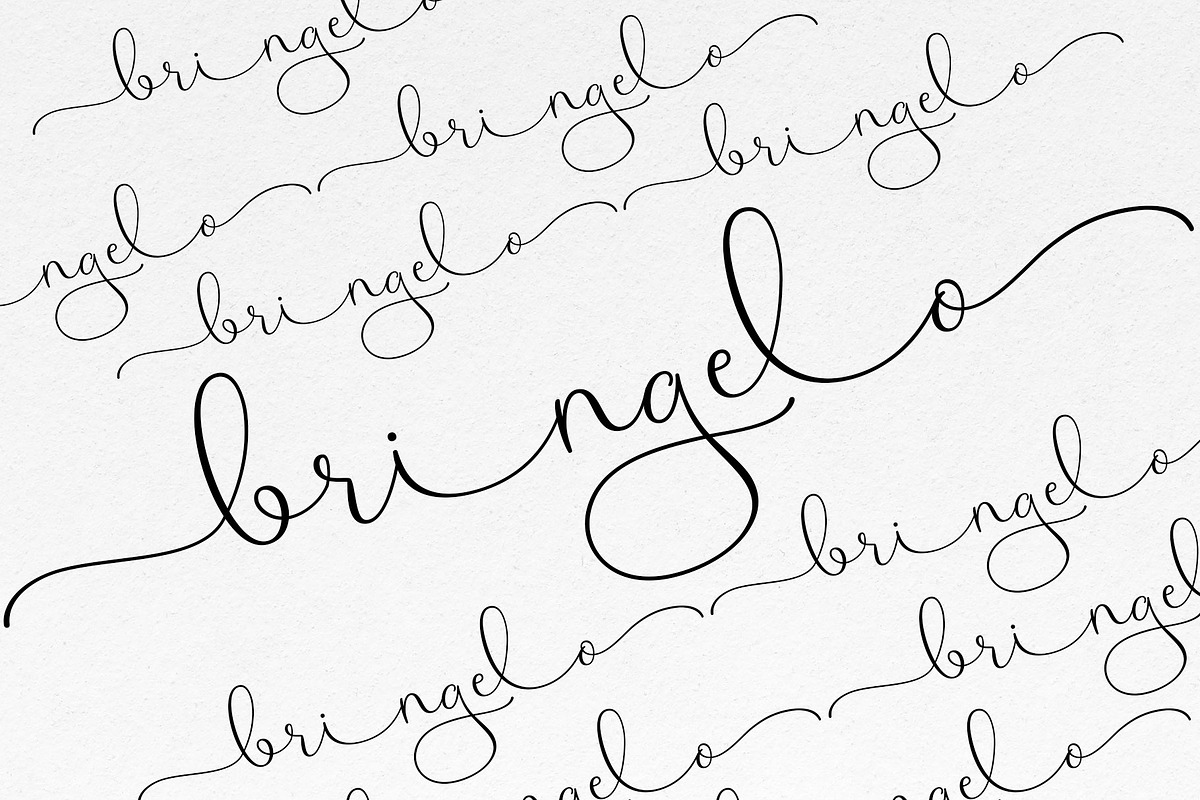 bringelo
bringelo
bringelo
ngelo
bringelo
bringelo
bringelo
bringelo
bringel
ngelo
ngelo